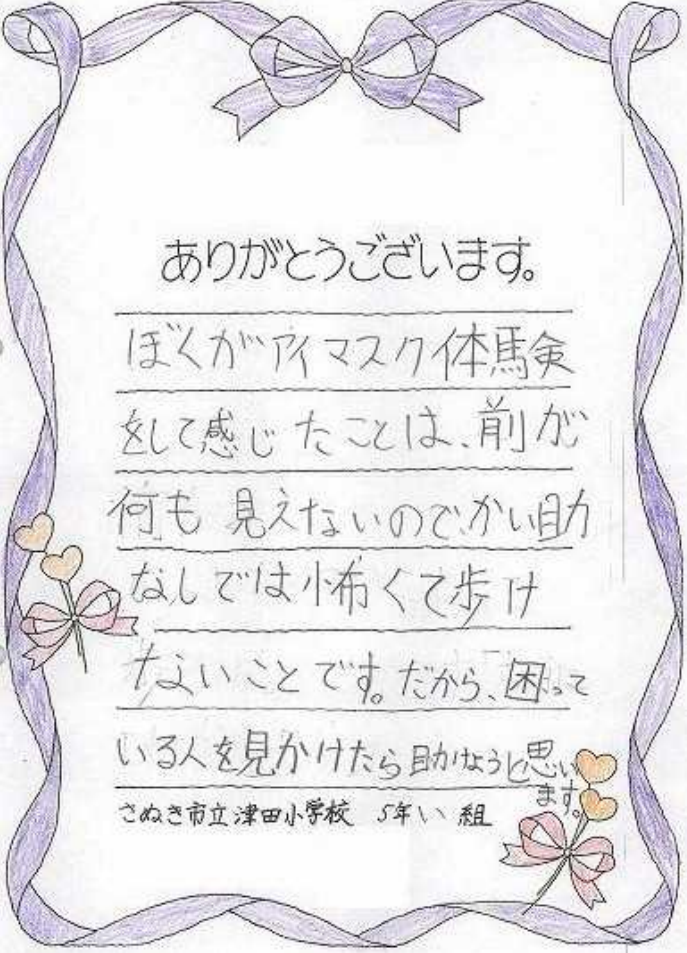 ありがとうございます。
ぼくがアイマスク体験
をして感じたことは、前が
何も見えないので、かい助
なしでは怖くて歩け
ないことです。だから、困って
いる人を見かけたら助けようと思い
ます。
さぬき市立津田小学校 5年い組